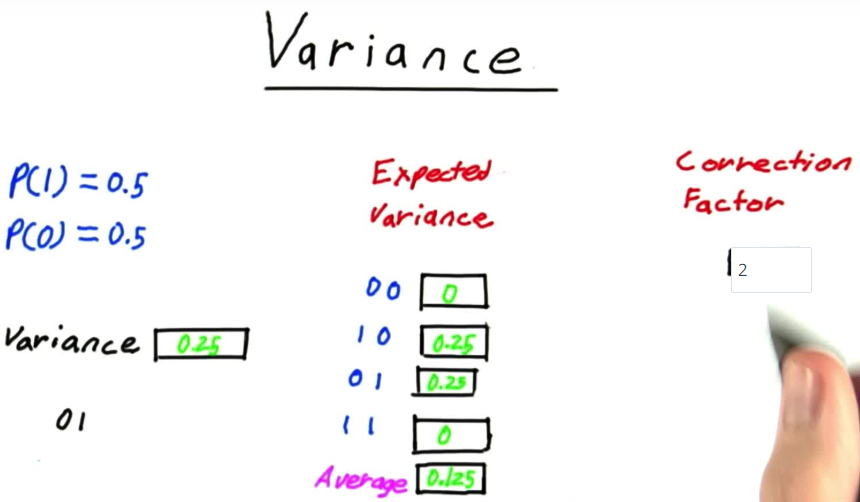 Variance
P(1) = 0.5
P(0) = 0.5
Variance 0.25
01
Expected
Variance
00 0
10 0.25
01 0.25
11 0
Average 0.125
Correction
Factor
2